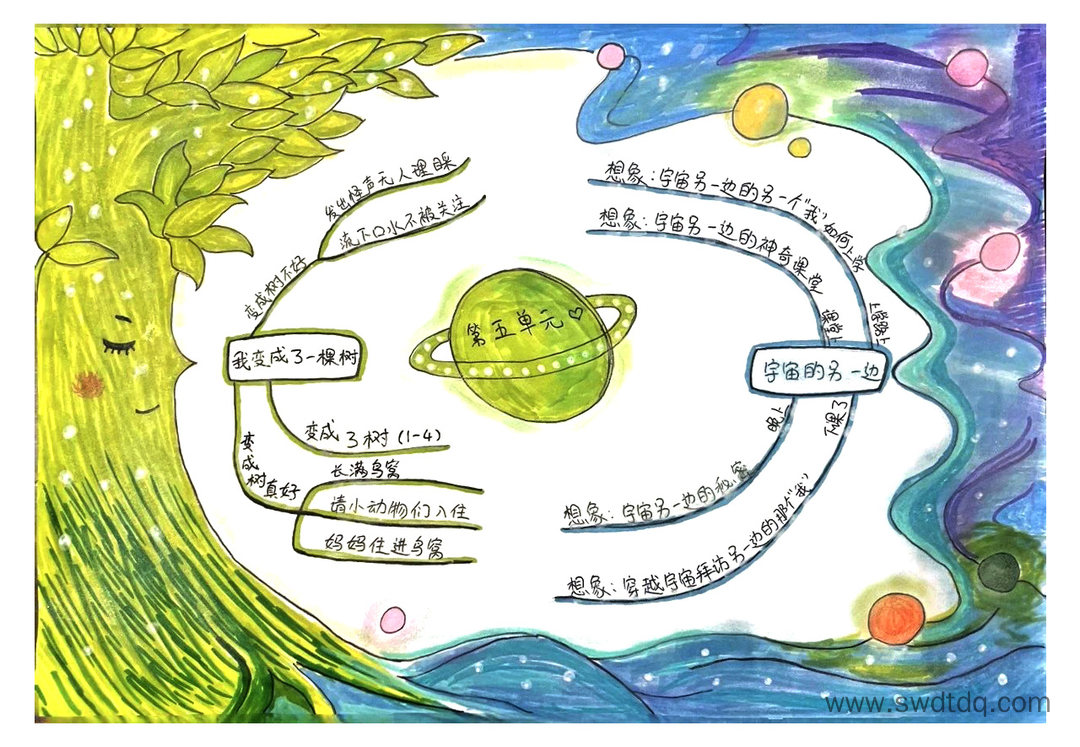 第五单元
我变成了一棵树
变成树不好
发出怪声无人理睬
流下口水不被关注
变成了树(1-4)
变成树真好
长满鸟窝
请小动物们入住
妈妈住进鸟窝
宇宙的另一边
想象:宇宙另一边的另一个"我"如何上学
想象:宇宙另一边的神奇课堂
晚上
想象:宇宙另一边的秘密
下课了
想象:穿越宇宙拜访另一边的那个"我"
www.swdtdq.com